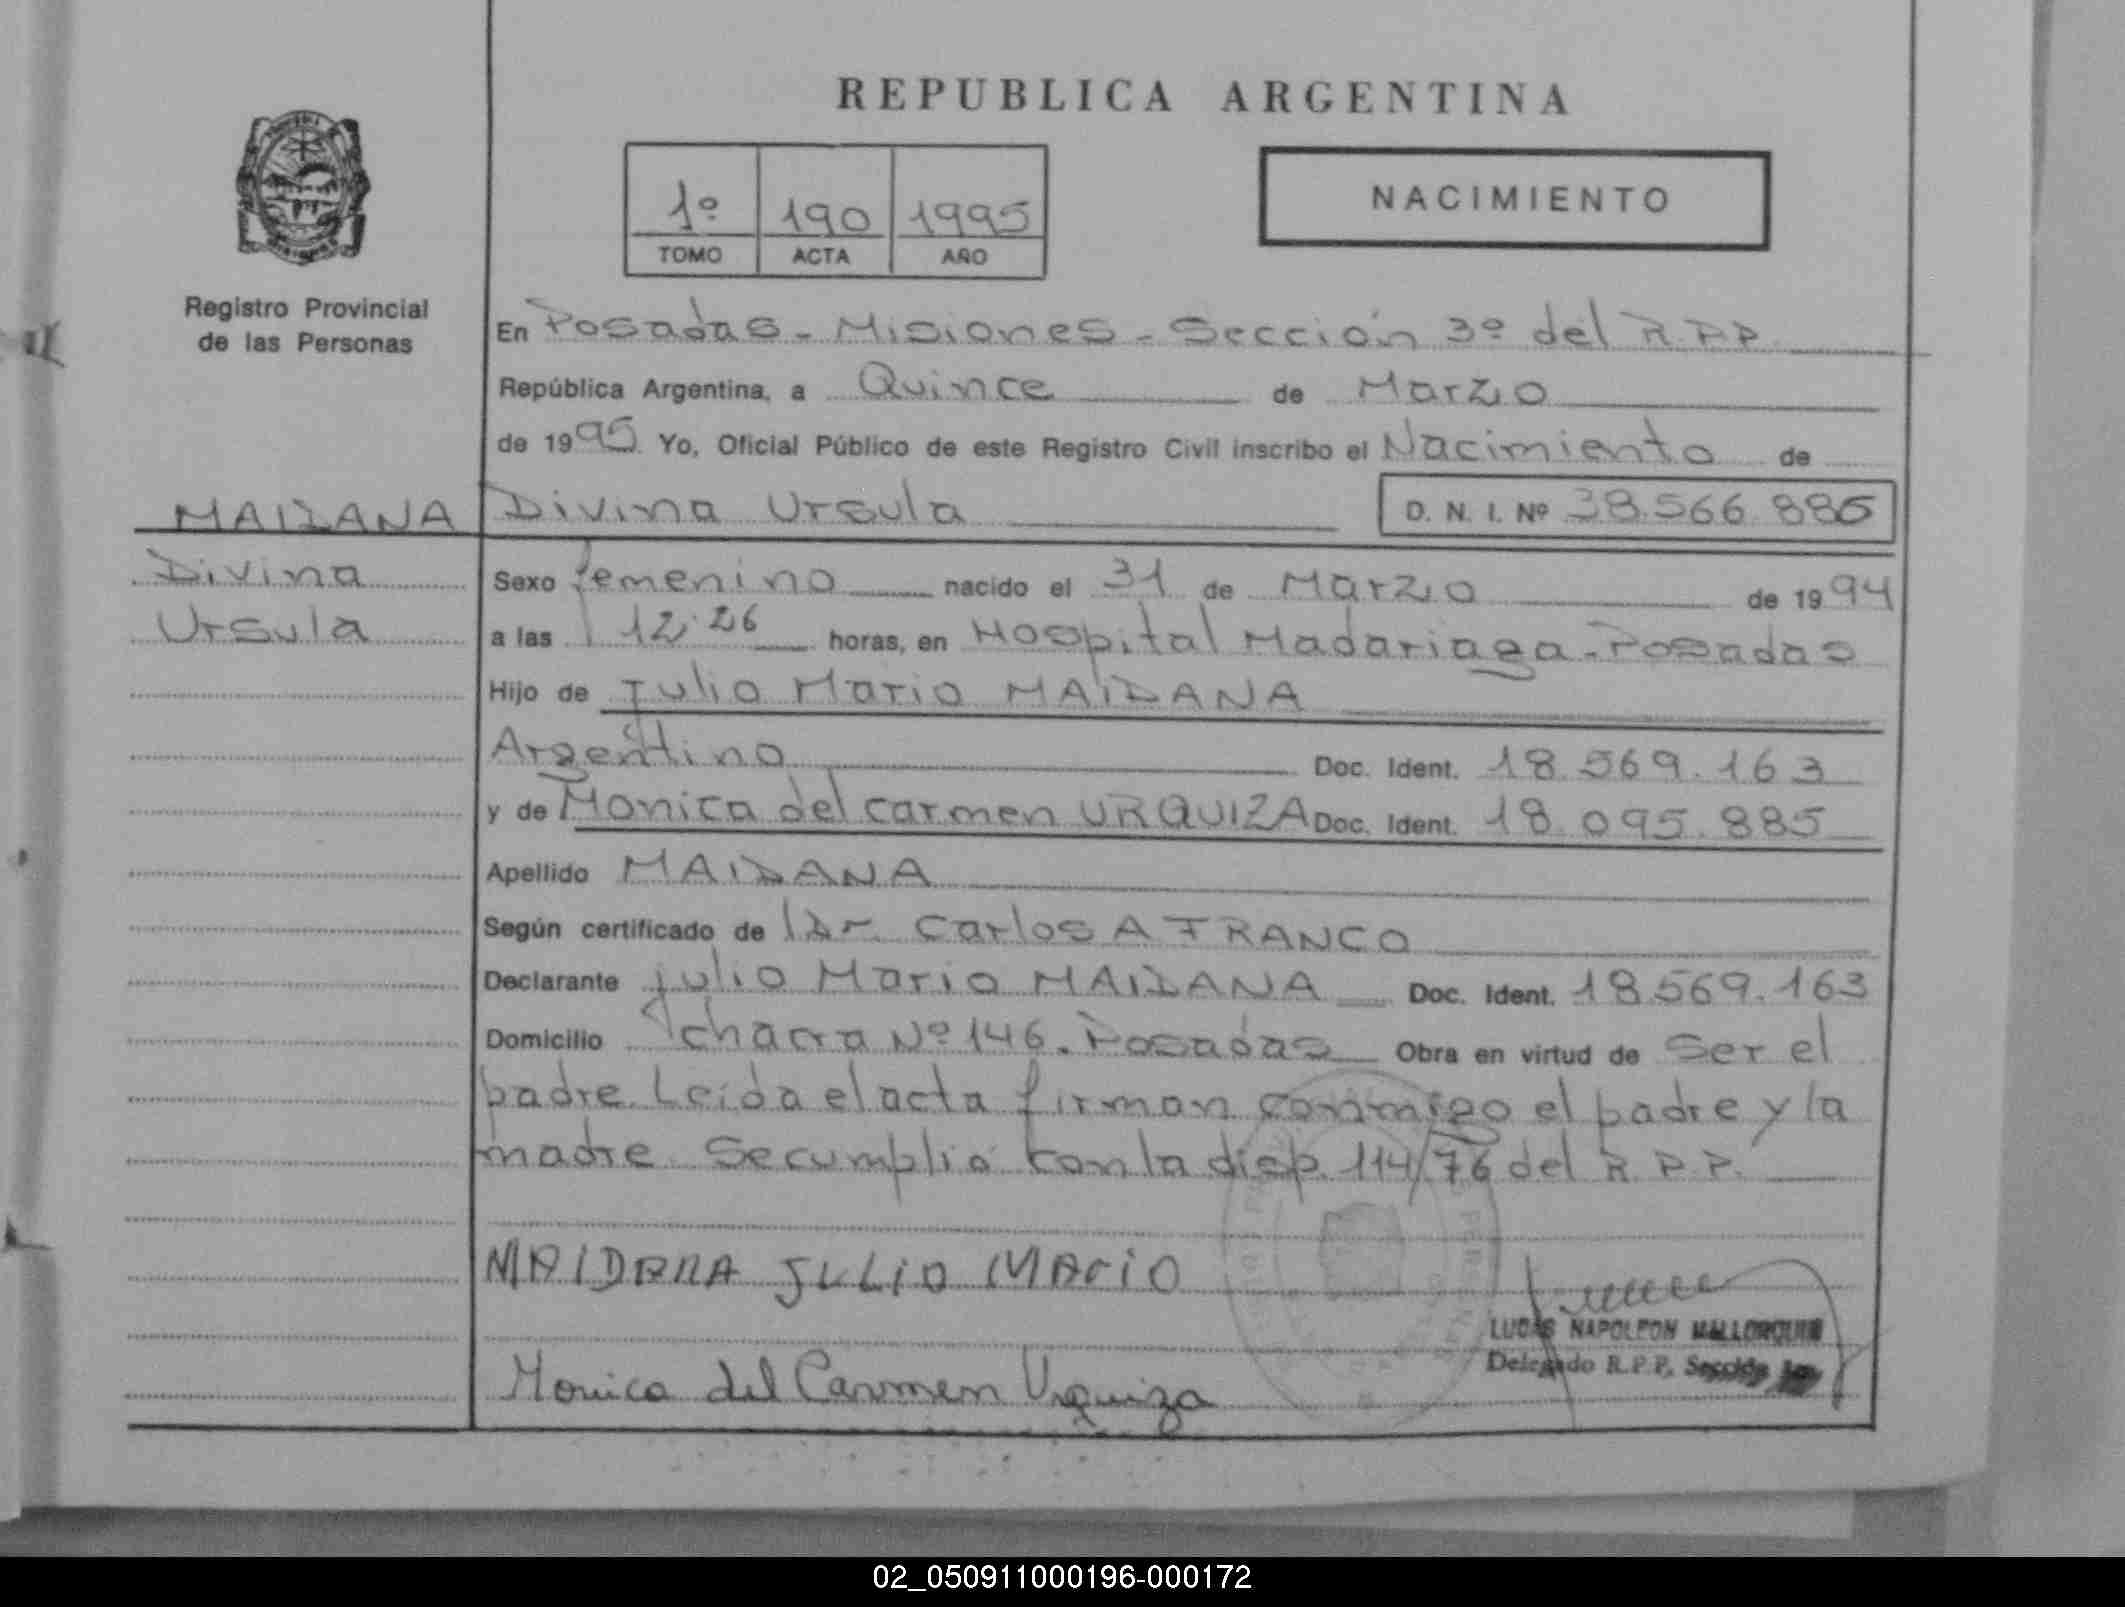 REPUBLICA ARGENTINA
1º 190 1995
TOMO ACTA AÑO
NACIMIENTO
Registro Provincial
de las Personas
En Posadas - Misiones - Sección 3º del R.P.P.
República Argentina, a Quince de Marzo
de 1995 Yo, Oficial Público de este Registro Civil inscribo el Nacimiento de
MAIDANA Divina Ursula D. N. I. Nº 38.566.886
Divina
Ursula
Sexo femenino nacido el 31 de Marzo de 1994
a las 12:26 horas, en Hospital Madariaga - Posadas
Hijo de Julio Mario MAIDANA
Argentino Doc. Ident. 18.569.163
y de Monica del carmen URQUIZA Doc. Ident. 18.095.885
Apellido MAIDANA
Según certificado de Dr. Carlos A FRANCO
Declarante Julio Mario MAIDANA Doc. Ident. 18.569.163
Domicilio chacra Nº 146. Posadas Obra en virtud de ser el
padre. Leida el acta firman conmigo el padre y la
madre. Se cumplió con la disp. 114/76 del R.P.P.
MAIDANA JULIO MARIO
LUCAS NAPOLEON MALLORQUIN
Delegado R.P.P. Sección
Monica del Carmen Urquiza
02_050911000196-000172